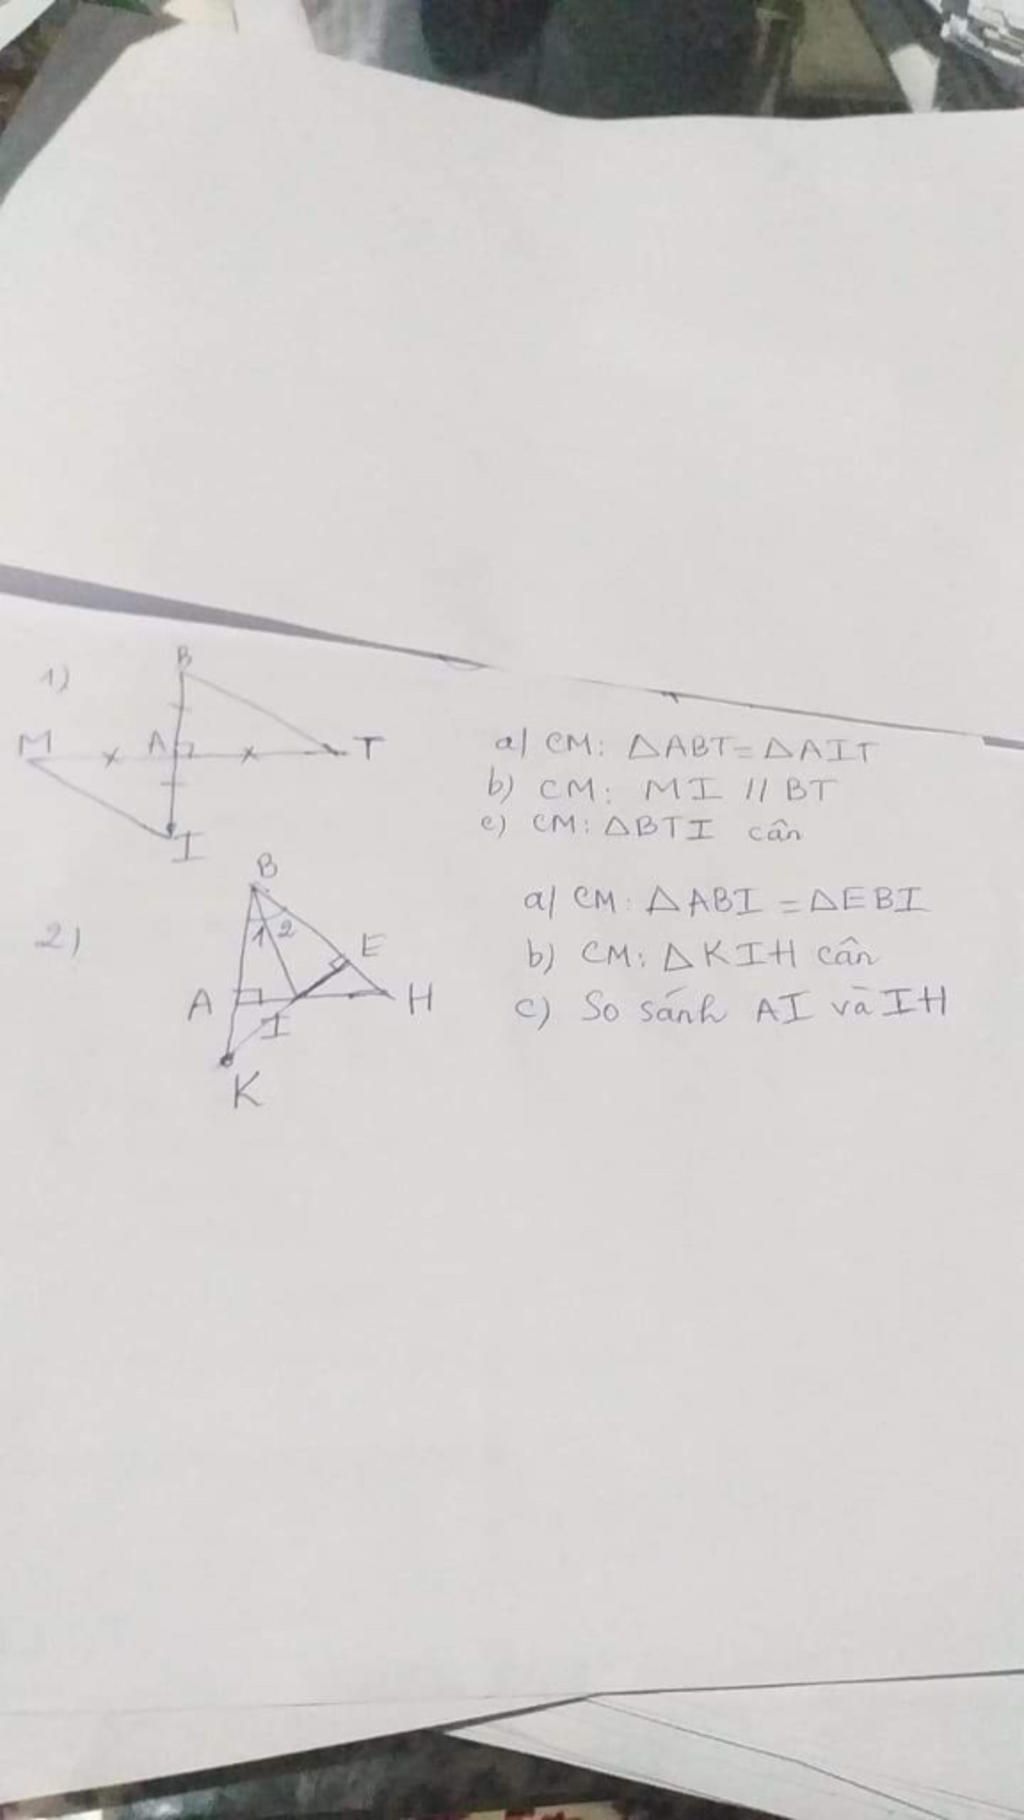 1)
B
M A T
I
a) CM: △ABT = △AIT
b) CM: MI // BT
c) CM: △BTI cân
2)
B
1 2
E
A H
I
K
a) CM: △ABI = △EBI
b) CM: △KIH cân
c) So sánh AI và IH